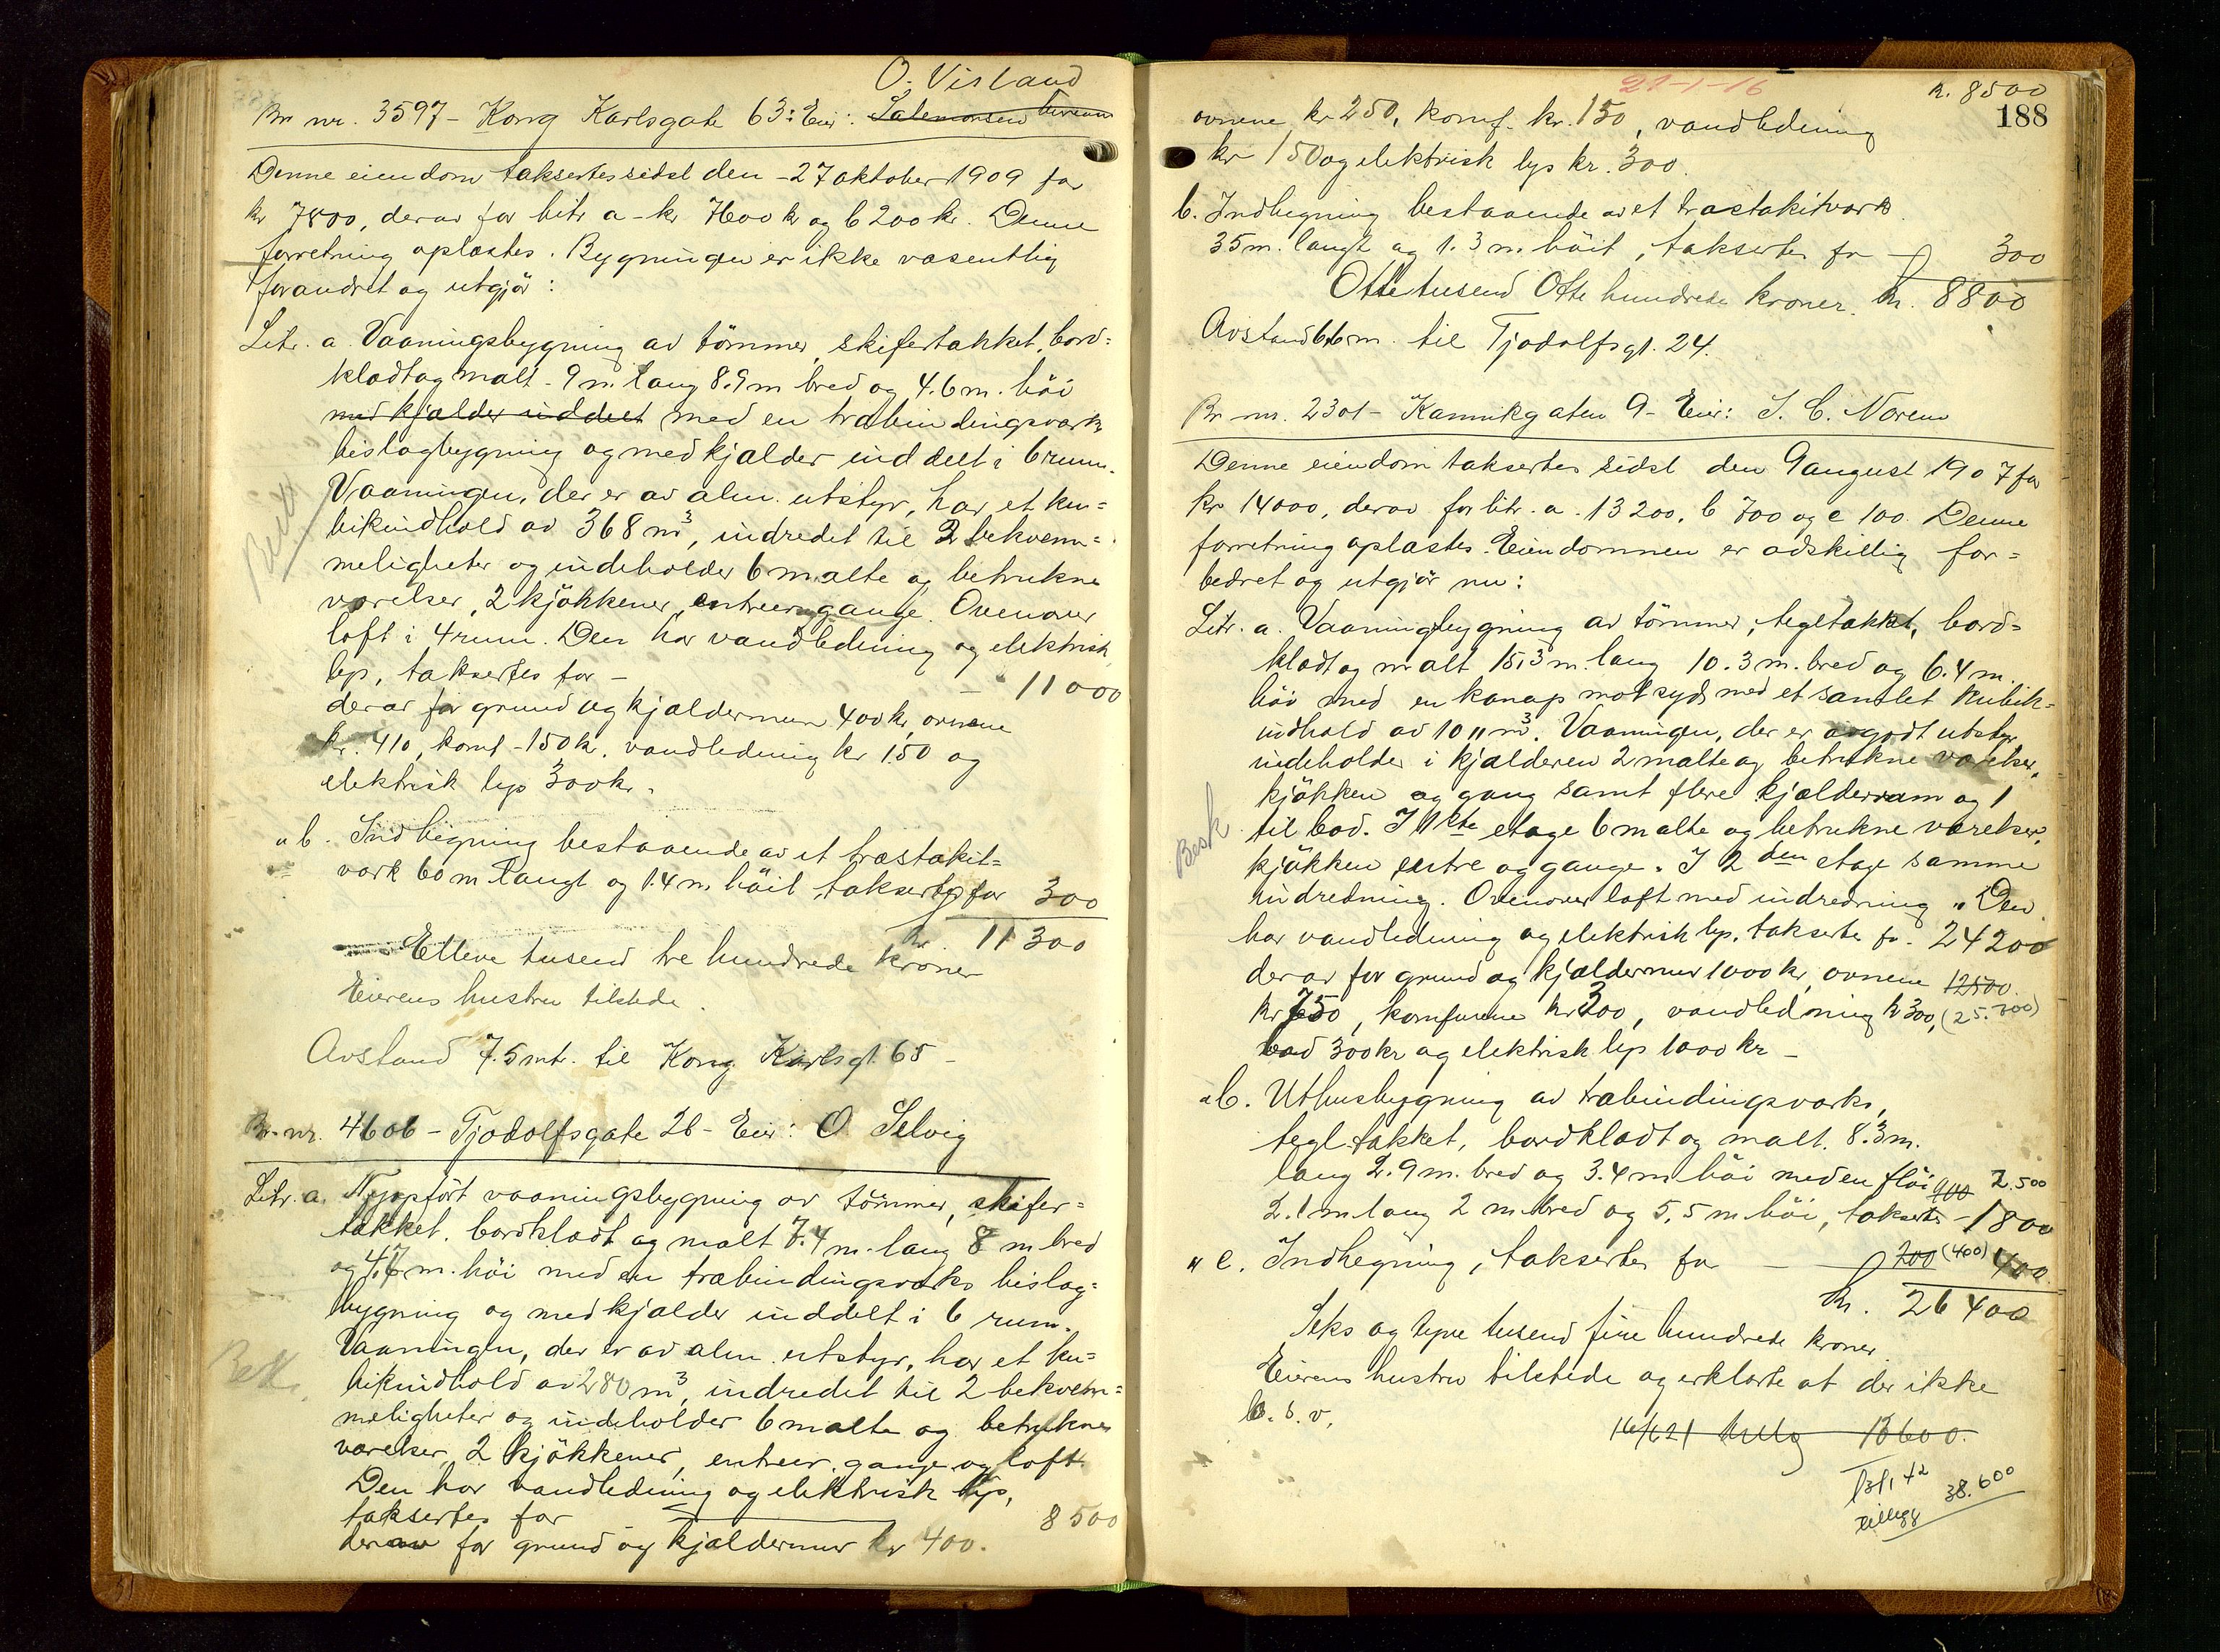 O. Visland
Br nr. 3597 - Kong Karlsgate 63: Eier: Salemonsen
Denne eiendom taksertes sidst den - 27 oktober 1909 for
kr 7800, derav for litr a - kr 7600 kr og b 200 kr. Denne
forretning oplæstes. Bygningen er ikke væsentlig
forandret og utgjør:
Litr. a Vaaningsbygning av tømmer, skifertækket, bord=
klædt og malt - 9 m. lang 8.9 m bred og 4.6 m. høi
med kjælder inddelt med en træbindingsværks
bislagbygning og med kjælder inddelt i 6 rum.
Vaaningen, der er av alm. utstyr, har et ku=
bikindhold av 368 m³, indredet til 2 bekvem=
meligheter og indeholder 6 malte og betrukne
værelser, 2 kjøkkener, entreer og gange. Ovenover
loft i 4 rum. Den har vandledning og elektrisk
lys, taksertes for - - " 11000
derav for grund og kjældermur 400 kr, ovnene
kr. 410, komf - 150 kr. vandledning kr 150 og
elektrisk lys 300 kr.
" b. Indhegning bestaaende av et træstakit=
værk 60 m langt og 1.4 m. høit taksertes for 300
Kr. 11300
Elleve tusend tre hundrede kroner
Eierens hustru tilstede.
Avstand 7.5 mtr. til Kong Karlsgt. 65 -
Br. nr. 4606 - Tjodolfsgate 26 - Eier: O Selvig
Litr. a. Nyopført vaaningsbygning av tømmer, skifer=
tækket, bordklædt og malt 7.4 m. lang 8 m bred
og 4.7 m. høi med en træbindingsværks bislag=
bygning og med kjælder inddelt i 6 rum.
Vaaningen, der er av alm. utstyr, har et ku=
bikindhold av 280 m³, indredet til 2 bekvem=
meligheter og indeholder 6 malte og betrukne
værelser, 2 kjøkkener, entreer, gange og loft.
Den har vandledning og elektrisk lys,
taksertes for 8500
derav for grund og kjældermur kr 400.
21-1-16
Kr. 8500
188
ovnene kr 250, komf. kr. 150, vandledning
kr 150 og elektrisk lys kr. 300.
b. Indhegning bestaaende av et træstakitværk
35 m. langt og 1.3 m. høit, taksertes for 300
Otte tusend Otte hundrede kroner. Kr. 8800
Avstand 6.6 m. til Tjodolfsgt. 24.
Br nr. 2301 - Kannikgaten 9 - Eier: S. C. Norem
Denne eiendom taksertes sidst den 9 august 1907 for
kr 14000, derav for litr. a. 13200, b 700 og c 100. Denne
forretning oplæstes. Eiendommen er adskillig for=
bedret og utgjør nu:
Litr. a. Vaaningsbygning av tømmer, tegltækket, bord=
klædt og malt 15,3 m. lang 10.3 m. bred og 6.4 m.
høi med en kanap mot syd, med et samlet kubik=
indhold av 1011 m³. Vaaningen, der er av godt utstyr
indeholder i kjælderen 2 malte og betrukne værelser,
kjøkken og gang samt flere kjælderrum og 1
til bod. I 1ste etage 6 malte og betrukne værelser,
Besk
kjøkken entre og gange. I 2den etage samme
indredning. Ovenover loft med indredning. Den
har vandledning og elektrisk lys, taksertes for - 24200
derav for grund og kjældermur 1000 kr, ovnene 12500
kr 750, komfurene kr 300, vandledning kr 300, (25.300)
bad 300 kr og elektrisk lys 1000 kr -
" b. Uthusbygning av træbindingsværks,
tegltækket, bordklædt og malt. 8.3 m.
lang 2.9 m. bred og 3.4 m høi med en fløi 900 2.500
2.1 m lang 2 m bred og 5,5 m høi, taksertes - 1800
" c. Indhegning, taksertes for 200 (400) 400
Kr. 26400
Seks og tyve tusend fire hundrede kroner
Eierens hustru tilstede og erklærte at der ikke
b. b. v.
13600.
tillegg 38.600